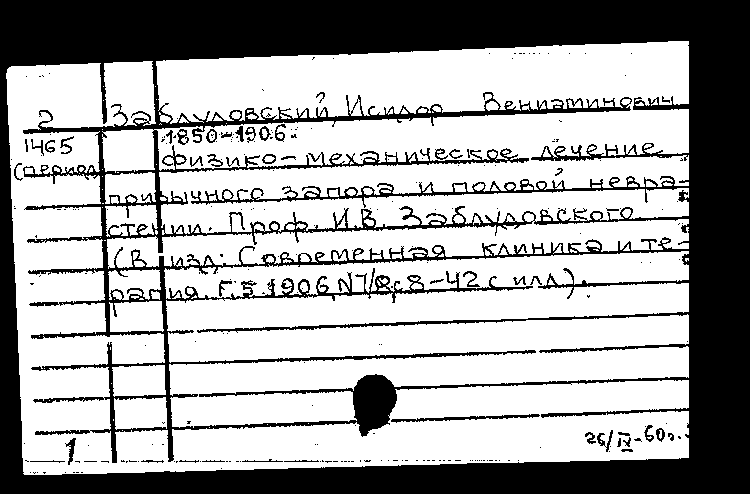 2 Заблудовский, Исидор Вениаминович
1465 1850-1906.
(период) Физико-механическое лечение
привычного запора и половой невра-
стении. Проф. И.В. Заблудовского
(В изд: Современная клиника и те-
рапия. Г.5 1906, N7/8, с 8-42 с илл).
1 26/IX-60г.